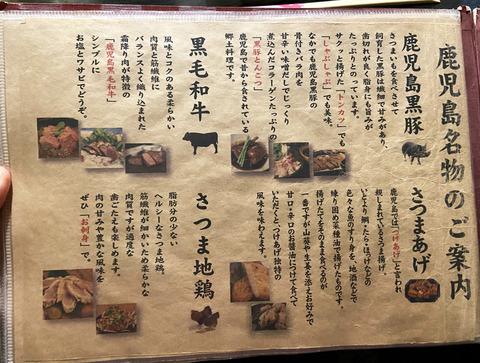 鹿児島名物のご案内
鹿児島黒豚
さつまいもを食べさせて
飼育した黒豚は繊細で甘みがあり、
歯切れが良く脂身にも旨みが
たっぷりとのっています。
サクッと揚げた「トンカツ」でも
「しゃぶしゃぶ」でも美味。
なかでも鹿児島黒豚の
骨付きバラ肉を
甘辛い味噌だしでじっくり
煮込んだコラーゲンたっぷりの
「黒豚とんこつ」は
鹿児島で昔から食されている
郷土料理です。
黒毛和牛
風味とコクのある柔らかい
肉質と筋繊維に
バランスよく織り込まれた
霜降り肉が特徴の
「鹿児島黒毛和牛」
シンプルに
お塩とワサビでどうぞ。
さつまあげ
鹿児島では「つけあげ」と言われ
親しまれているさつま揚げ。
いとより鯛・たら・ほっけなどの
色々な魚のすり身を、地酒などで
練り固め菜種油で揚げたものです。
揚げたてをそのまま食べるのが
一番ですが山葵や生姜を添えお好みで
甘口・辛口のお醤油につけて食べて
いただくとつけあげ独特の
風味を味わえます。
さつま地鶏
脂肪分の少ない
ヘルシーなさつま地鶏。
筋繊維が細かいため柔らかな
肉質ですが適度な
歯ごたえも楽しめます。
肉の甘みや豊かな風味を
ぜひ「お刺身」で。